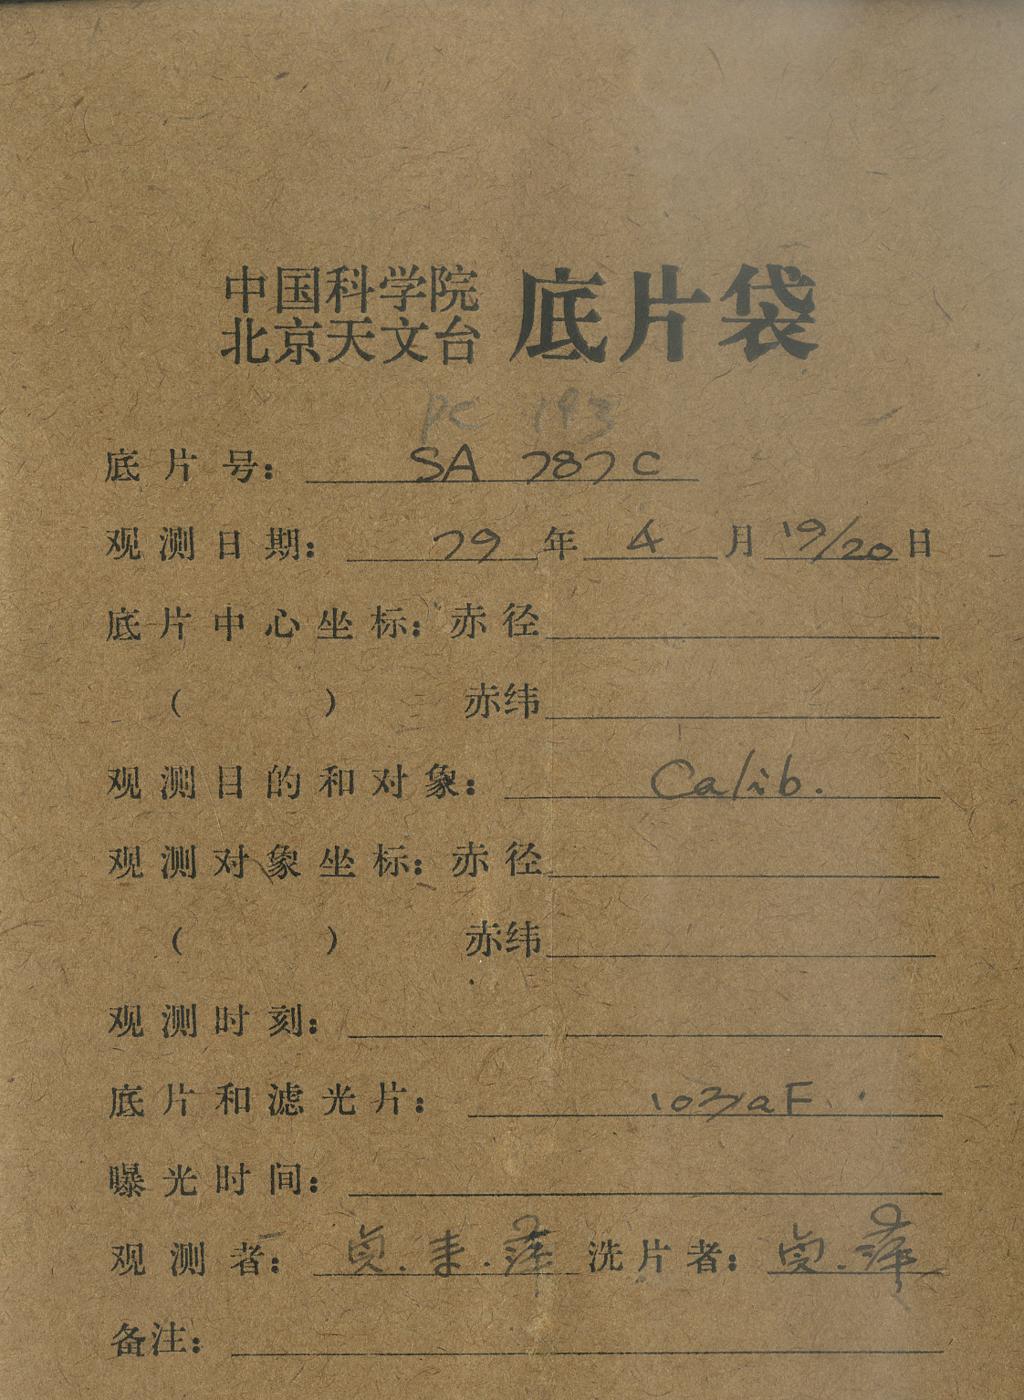 中国科学院
北京天文台
底片袋
PC 193
底片号： SA 787C
观测日期： 79年 4月 19/20日
底片中心坐标：赤径
（ ） 赤纬
观测目的和对象： Calib.
观测对象坐标：赤径
（ ） 赤纬
观测时刻：
底片和滤光片： 103aF
曝光时间：
观测者： 贞. . 萍 洗片者： 贞. 萍
备注：